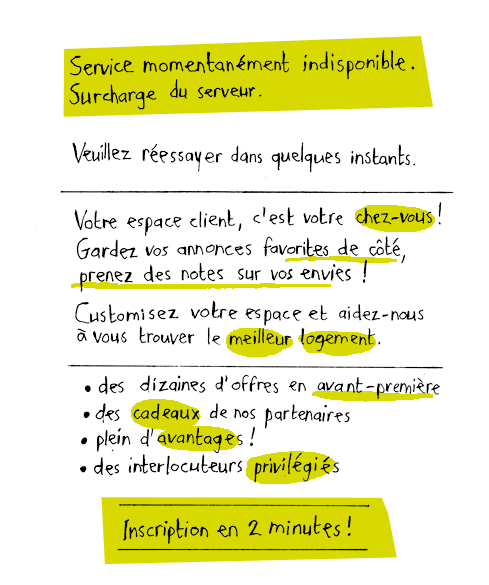 Service momentanément indisponible.
Surcharge du serveur.
Veuillez réessayer dans quelques instants.
Votre espace client, c'est votre chez-vous!
Gardez vos annonces favorites de côté,
prenez des notes sur vos envies!
Customisez votre espace et aidez-nous
à vous trouver le meilleur logement.
• des dizaines d'offres en avant-première
• des cadeaux de nos partenaires
• plein d'avantages!
• des interlocuteurs privilégiés
Inscription en 2 minutes!